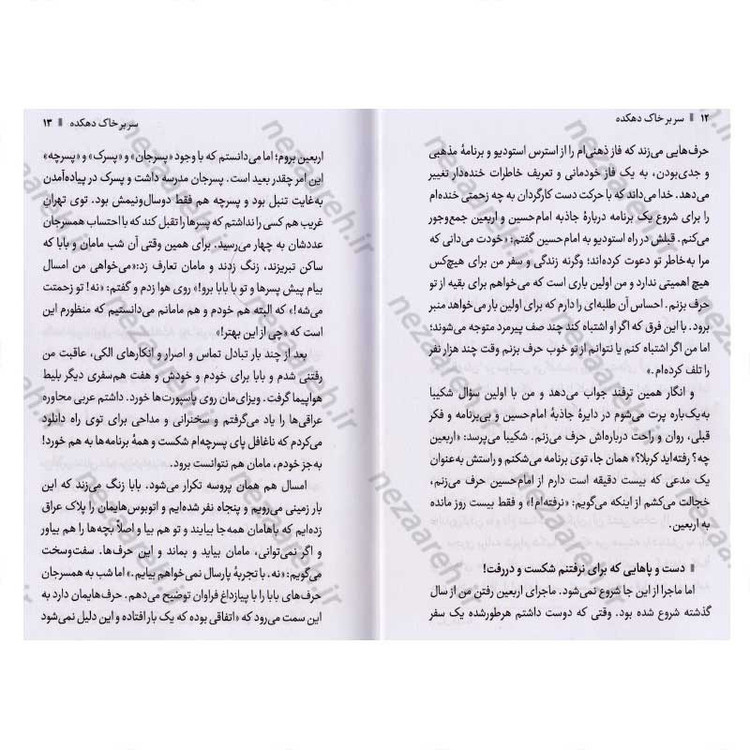 ۱۲ ▪ سر بر خاک دهکده
حرف‌هایی می‌زند که فاز ذهنی‌ام را از استرس استودیو و برنامهٔ مذهبی
و جدی‌بودن، به یک فاز خودمانی و تعریف خاطرات خنده‌دار تغییر
می‌دهد. خدا می‌داند که با حرکت دست کارگردان به چه زحمتی خنده‌ام
را برای شروع یک برنامه دربارهٔ جاذبه امام‌حسین و اربعین جمع‌وجور
می‌کنم. قبلش در راه استودیو به امام‌حسین گفتم: «خودت می‌دانی که
مرا به‌خاطر تو دعوت کرده‌اند؛ وگرنه زندگی و سفر من برای هیچ‌کس
هیچ اهمیتی ندارد و من اولین باری است که می‌خواهم برای بقیه از تو
حرف بزنم. احساس آن طلبه‌ای را دارم که برای اولین بار می‌خواهد منبر
برود. با این فرق که اگر او اشتباه کند چند صف پیرمرد متوجه می‌شوند؛
اما من اگر اشتباه کنم یا نتوانم از تو خوب حرف بزنم وقت چند هزار نفر
را تلف کرده‌ام.»
و انگار همین ترفند جواب می‌دهد و من با اولین سؤال شکیبا
به‌یک‌باره پرت می‌شوم در دایرهٔ جاذبهٔ امام‌حسین و بی‌برنامه و فکر
قبلی، روان و راحت درباره‌اش حرف می‌زنم. شکیبا می‌پرسد: «اربعین
چه؟ رفته‌اید کربلا؟» همان جا، توی برنامه می‌شکنم و راستش به‌عنوان
یک مدعی که بیست دقیقه است دارم از امام‌حسین حرف می‌زنم،
خجالت می‌کشم از اینکه می‌گویم: «نرفته‌ام!» و فقط بیست روز مانده
به اربعین.
▪ دست و پاهایی که برای نرفتنم شکست و دررفت!
اما ماجرا از این جا شروع نمی‌شود. ماجرای اربعین رفتن من از سال
گذشته شروع شده بود. وقتی که دوست داشتم هرطورشده یک سفر
سر بر خاک دهکده ▪ ۱۳
اربعین بروم؛ اما می‌دانستم که با وجود «پسرجان» و «پسرک» و «پسرچه»
این امر چقدر بعید است. پسرجان مدرسه داشت و پسرک در پیاده‌آمدن
به‌غایت تنبل بود و پسرچه هم فقط دوسال‌ونیمش بود. توی تهرانِ
غریب هم کسی را نداشتم که پسرها را تقبل کند که با احتساب همسرجان
عددشان به چهار می‌رسید. برای همین وقتی آن شب مامان و بابا که
ساکن تبریزند، زنگ زدند و مامان تعارف زد:«می‌خواهی من امسال
بیام پیش پسرها و تو با بابا برو!» روی هوا زدم و گفتم: «نه! تو زحمتت
می‌شه!» که البته هم خودم و هم مامانم می‌دانستیم که منظورم این
است که «چی از این بهتر!»
بعد از چند بار تبادل تماس و اصرار و انکارهای الکی، عاقبت من
رفتنی شدم و بابا برای خودم و خودش و هفت هم‌سفری دیگر بلیط
هواپیما گرفت. ویزای‌مان روی پاسپورت‌ها خورد. داشتم عربی محاوره
عراقی‌ها را یاد می‌گرفتم و سخنرانی و مداحی برای توی راه دانلود
می‌کردم که ناغافل پای پسرچه‌ام شکست و همهٔ برنامه‌ها به هم خورد!
به‌جز خودم، مامان هم نتوانست برود.
امسال هم همان پروسه تکرار می‌شود. بابا زنگ می‌زند که این
بار زمینی می‌رویم و پنجاه نفر شده‌ایم و اتوبوس‌هایمان را پلاک عراق
زده‌ایم که باهامان همه‌جا بیایند و تو هم بیا و اصلاً بچه‌ها را هم بیاور
و اگر نمی‌توانی، مامان بیاید و بماند و این حرف‌ها. سفت‌وسخت
می‌گویم: «نه. با تجربهٔ پارسال نمی‌خواهم بیایم.» اما شب به همسرجان
حرف‌های بابا را با پیازداغ فراوان توضیح می‌دهم. حرف‌هایمان دارد به
این سمت می‌رود که «اتفاقی بوده که یک بار افتاده و این دلیل نمی‌شود
nezaareh.ir
nezaareh.ir
nezaareh.ir
nezaareh.ir
nezaareh.ir
nezaareh.ir